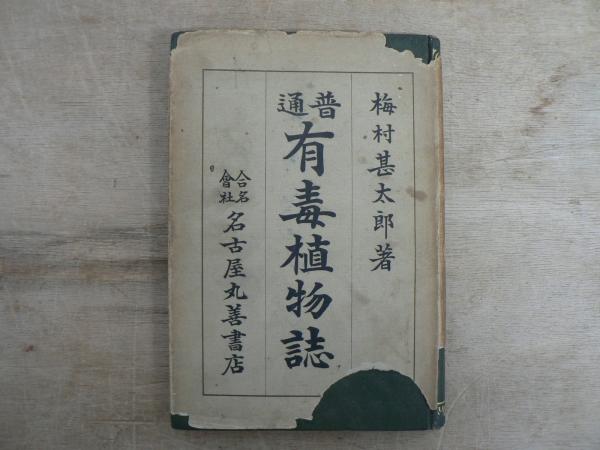 梅村甚太郎著
普通有毒植物誌
合名會社名古屋丸善書店